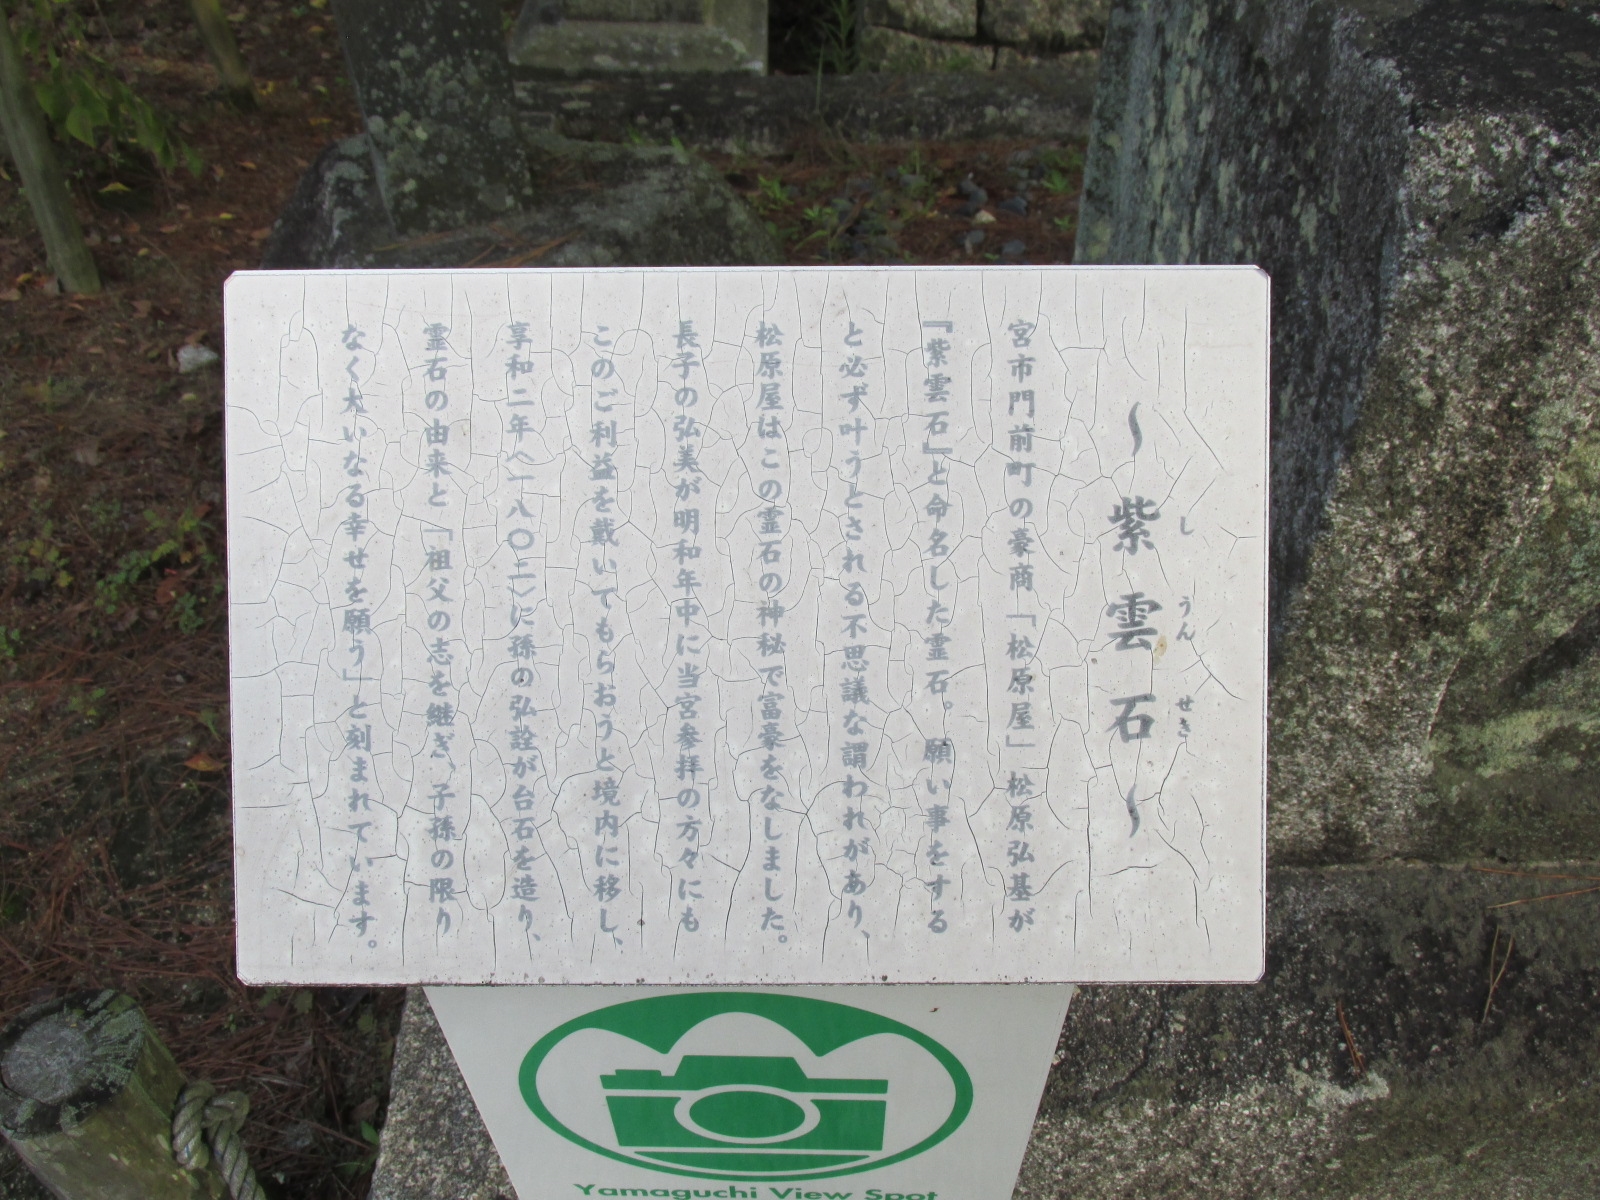 ～紫雲石～
し うん せき
宮市門前町の豪商「松原屋」松原弘基が
『紫雲石』と命名した霊石。願い事をする
と必ず叶うとされる不思議な謂われがあり、
松原屋はこの霊石の神秘で富豪をなしました。
長子の弘美が明和年中に当宮参拝の方々にも
このご利益を戴いてもらおうと境内に移し、
享和二年〈一八〇二〉に孫の弘詮が台石を造り、
霊石の由来と「祖父の志を継ぎ、子孫の限り
なく大いなる幸せを願う」と刻まれています。
Yamaguchi View Spot